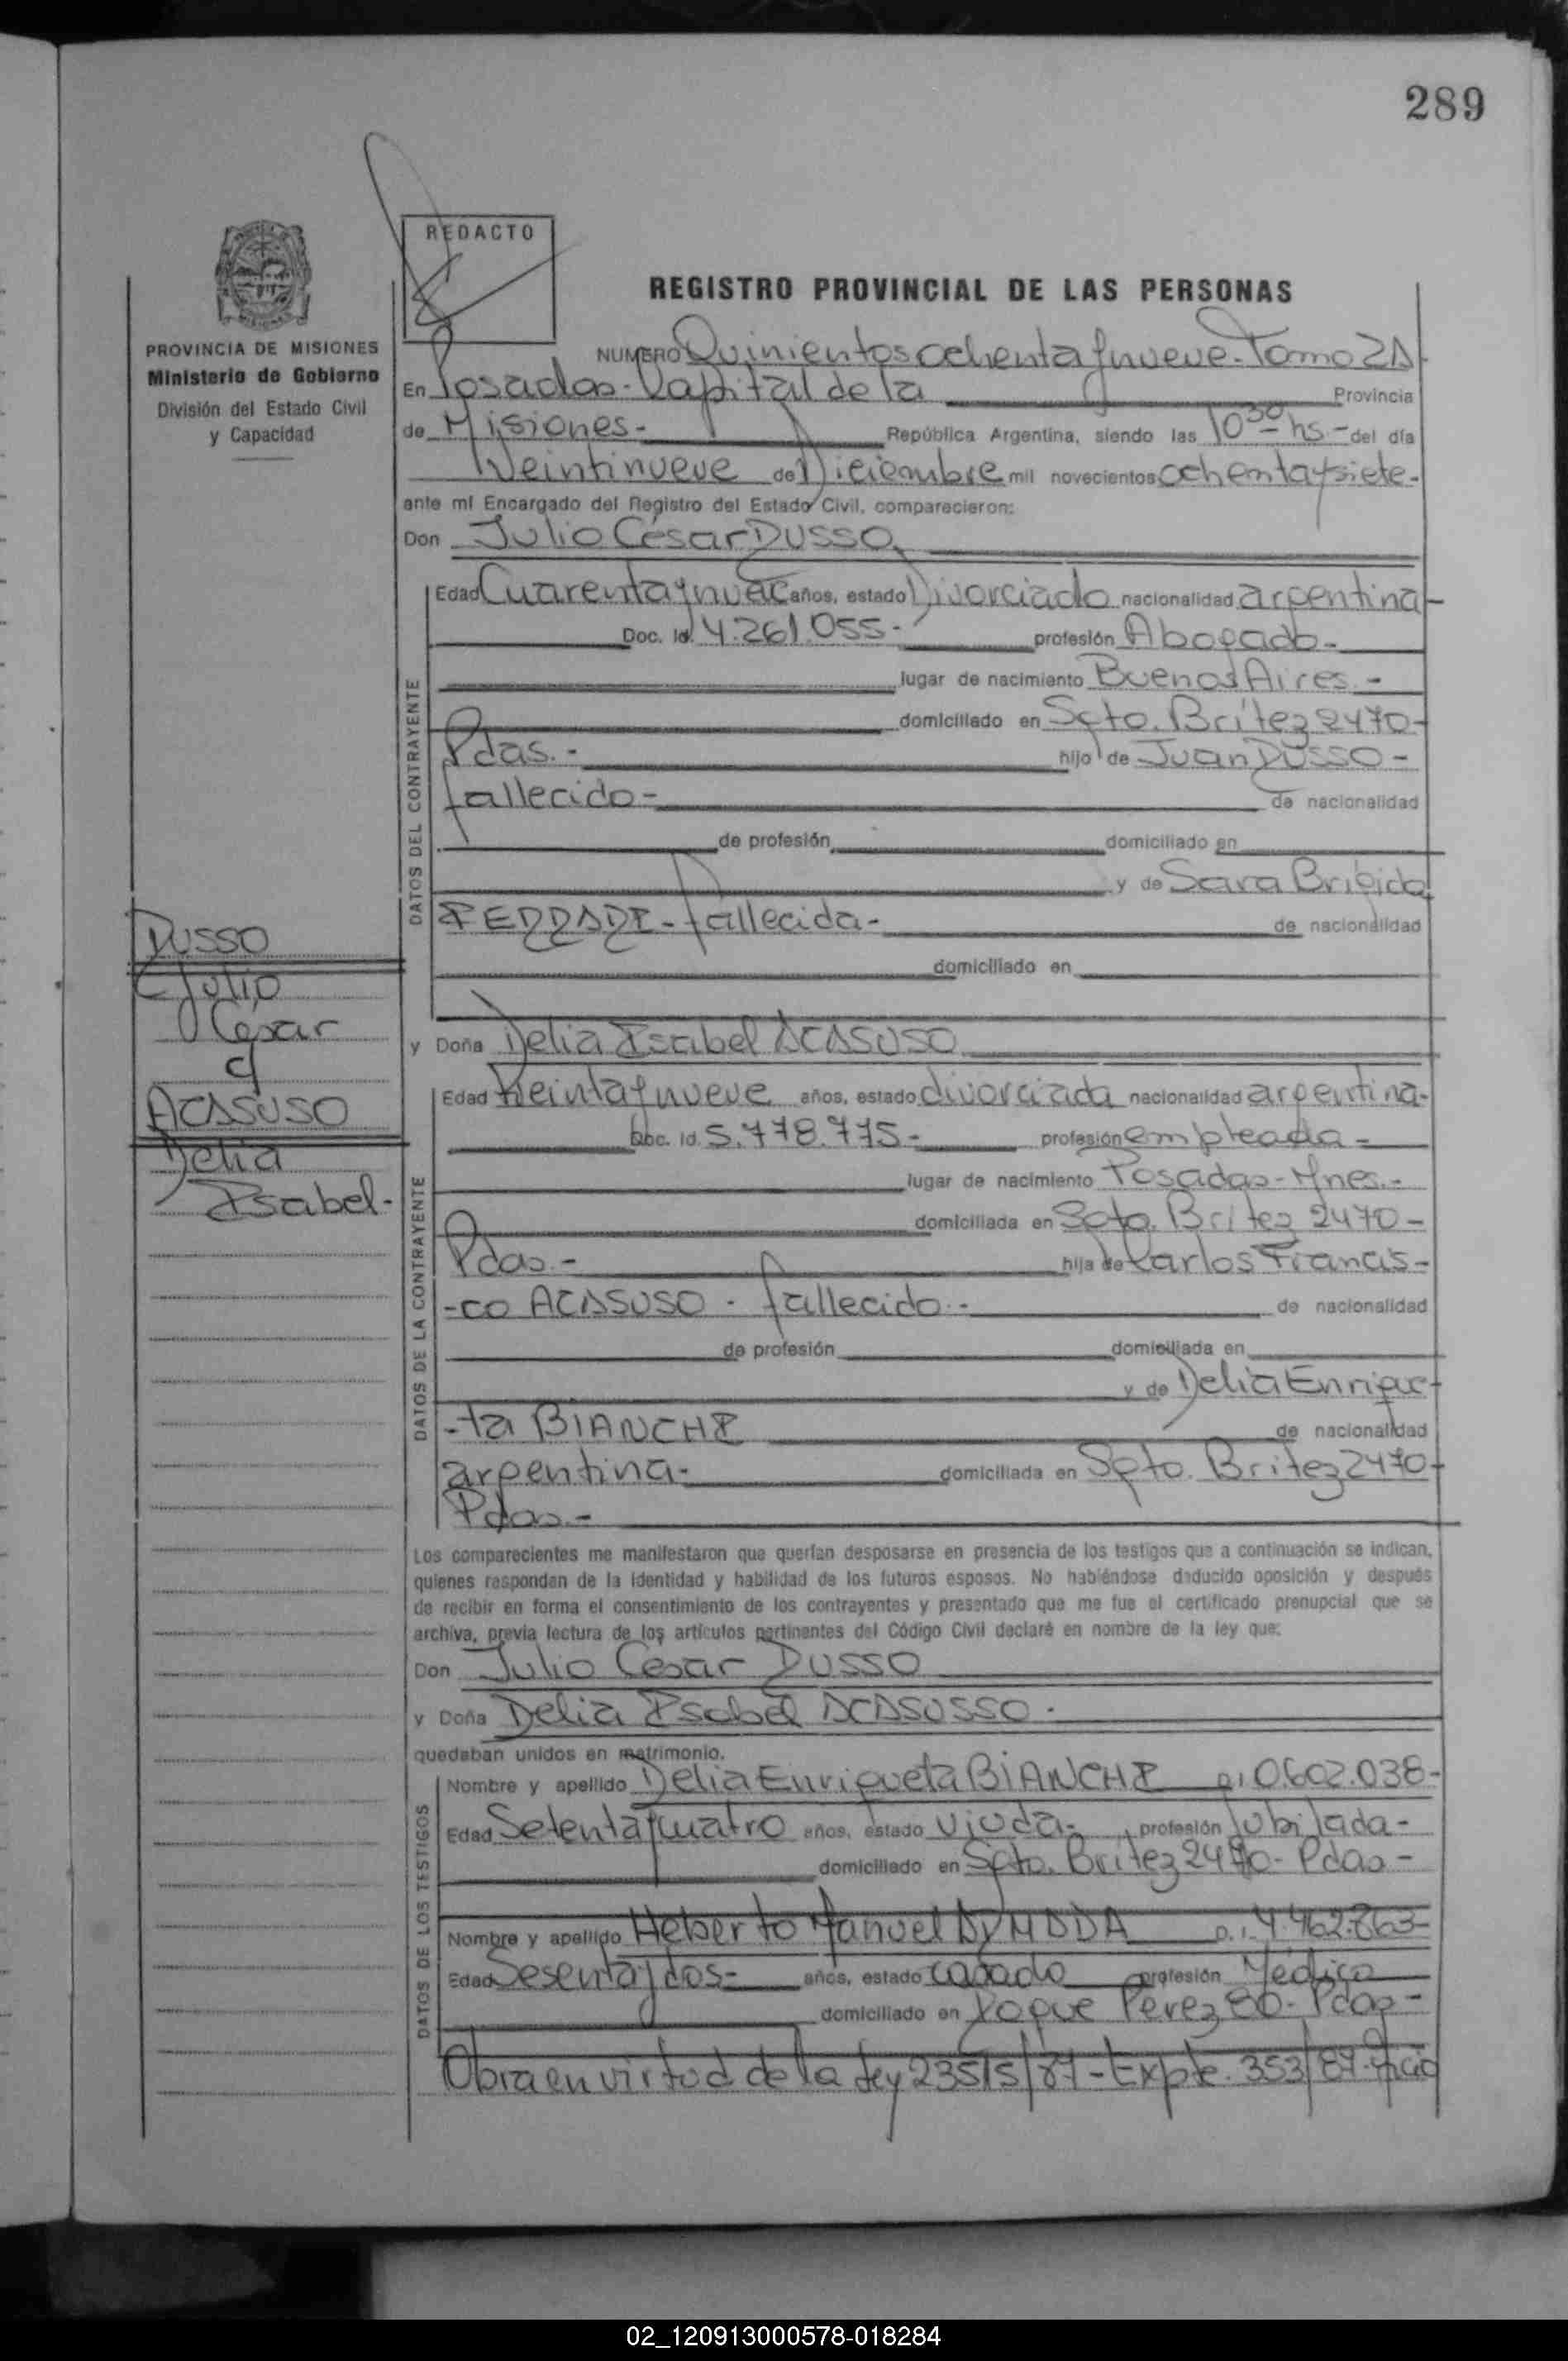 289
REDACTO
REGISTRO PROVINCIAL DE LAS PERSONAS
PROVINCIA DE MISIONES
Ministerio de Gobierno
División del Estado Civil
y Capacidad
NUMERO Quinientos ochenta y nueve - Tomo 2A
En Posadas - Capital de la Provincia
de Misiones - República Argentina, siendo las 10 30 hs. - del día
Veintinueve de Diciembre mil novecientos ochenta y siete -
ante mí Encargado del Registro del Estado Civil, comparecieron:
Don Julio César DUSSO
DATOS DEL CONTRAYENTE
Edad Cuarenta y nueve años, estado Divorciado nacionalidad argentina -
Doc. Id. 4.261.055 - profesión Abogado -
lugar de nacimiento Buenos Aires. -
domiciliado en Sgto. Brítez 2470 -
Pdas. - hijo de Juan DUSSO -
fallecido - de nacionalidad
de profesión domiciliado en
y de Sara Brígida
fallecida - de nacionalidad
domiciliado en
DUSSO
Julio
César
c/
ACASUSO
Delia
Isabel -
y Doña Delia Isabel ACASUSO
DATOS DE LA CONTRAYENTE
Edad treinta y nueve años, estado divorciada nacionalidad argentina -
Doc. Id. 5.778.775 - profesión empleada -
lugar de nacimiento Posadas - Mnes. -
domiciliada en Sgto. Brítez 2470 -
Pdas. - hija de Carlos Francis -
- co ACASUSO - fallecido - de nacionalidad
de profesión domiciliada en
y de Delia Enrique
- ta BIANCHI de nacionalidad
argentina - domiciliada en Sgto. Brítez 2470 -
Pdas. -
Los comparecientes me manifestaron que querían desposarse en presencia de los testigos que a continuación se indican,
quienes responden de la identidad y habilidad de los futuros esposos. No habiéndose deducido oposición y después
de recibir en forma el consentimiento de los contrayentes y presentado que me fue el certificado prenupcial que se
archiva, previa lectura de los artículos pertinentes del Código Civil declaré en nombre de la ley que:
Don Julio Cesar DUSSO
y Doña Delia Isabel ACASUSSO -
quedaban unidos en matrimonio.
DATOS DE LOS TESTIGOS
Nombre y apellido Delia Enriqueta BIANCHI D.I 0.602.038 -
Edad Setenta y cuatro años, estado viuda - profesión Jubilada -
domiciliado en Sgto. Brítez 2470 - Pdas -
Nombre y apellido Heberto Manuel D.I. 4.462.863 -
Edad Sesenta y dos - años, estado casado profesión Médico
domiciliado en Roque Perez 80 - Pdas -
Obra en virtud de la Ley 23515/87 - Expte. 353/87
02_120913000578-018284